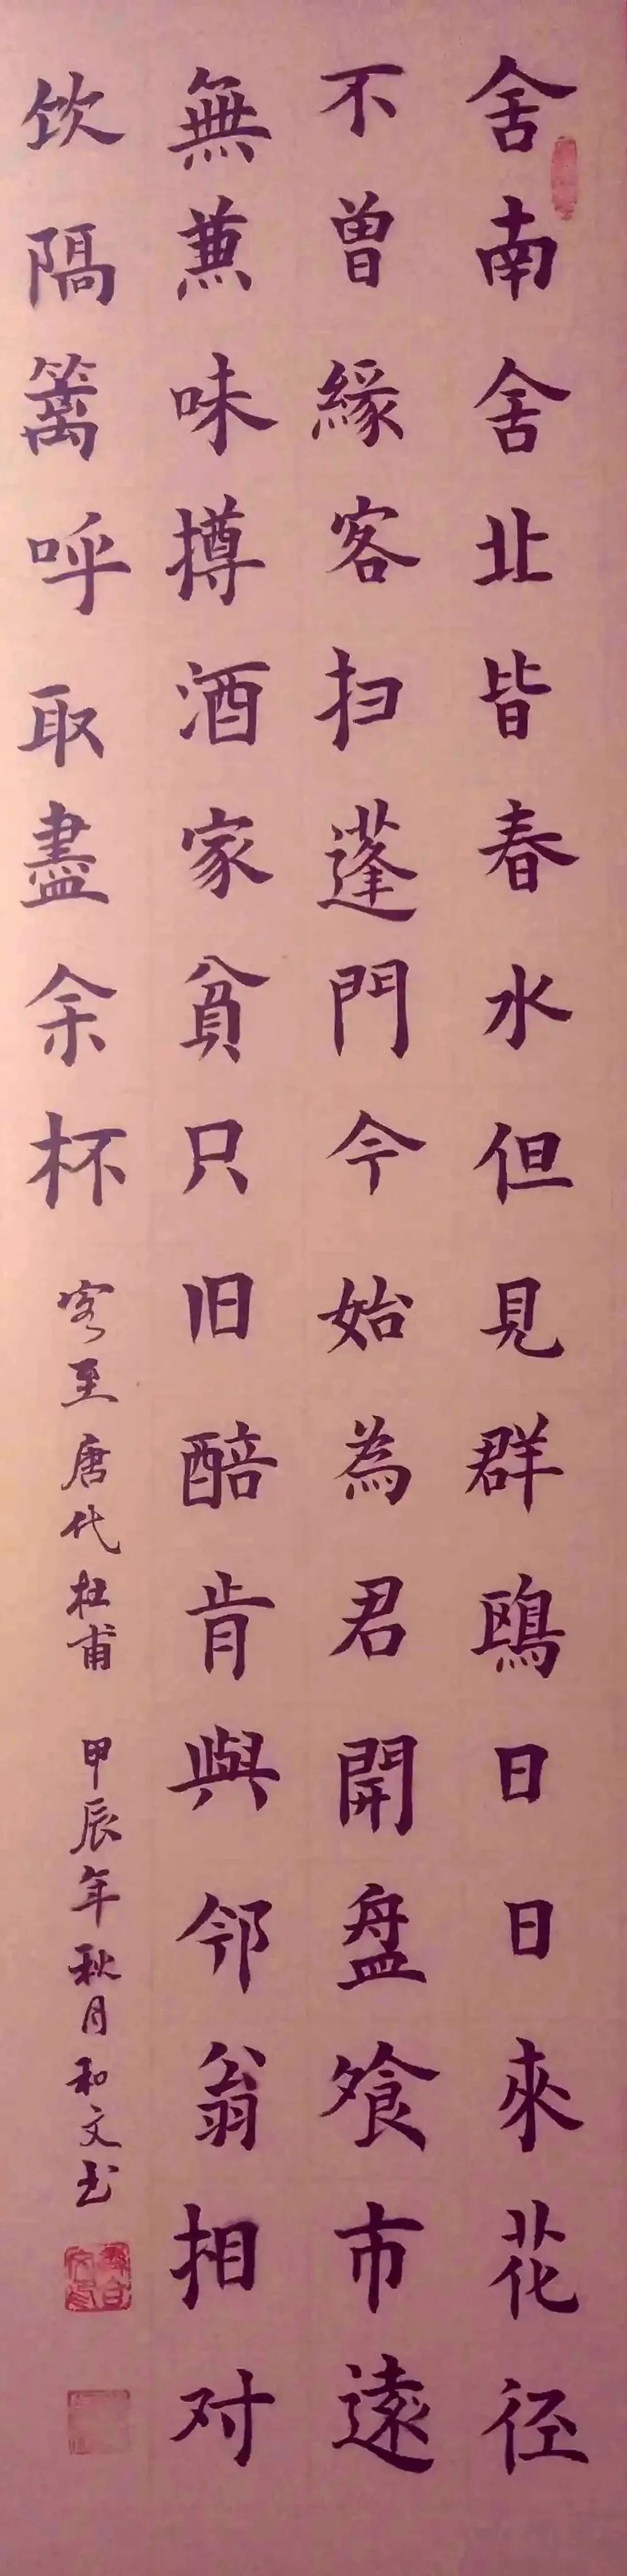 舍南舍北皆春水但見群鷗日日來花径
不曾緣客扫蓬門今始為君開盤飧市遠
無蒹味撙酒家貧只旧醅肯與邻翁相对
饮隔篱呼取盡余杯
客至唐代杜甫甲辰年秋月和文书